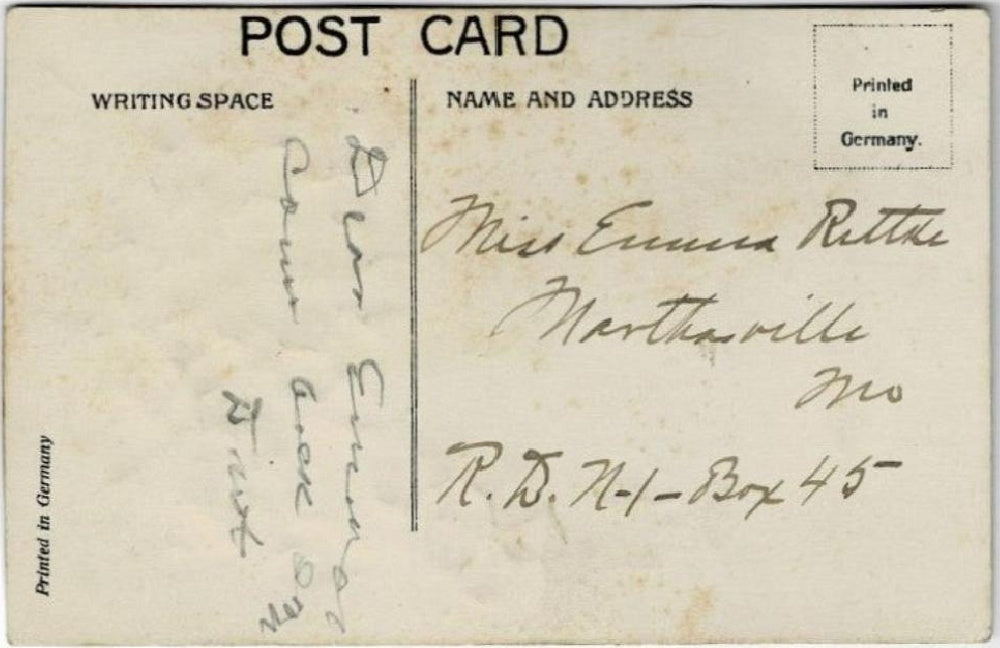 POST CARD
WRITING SPACE
NAME AND ADDRESS
Printed
in
Germany.
Dear Emma
Come and
Miss Emma
Marthasville
Mo
R. D. N-1- Box 45
Printed in Germany